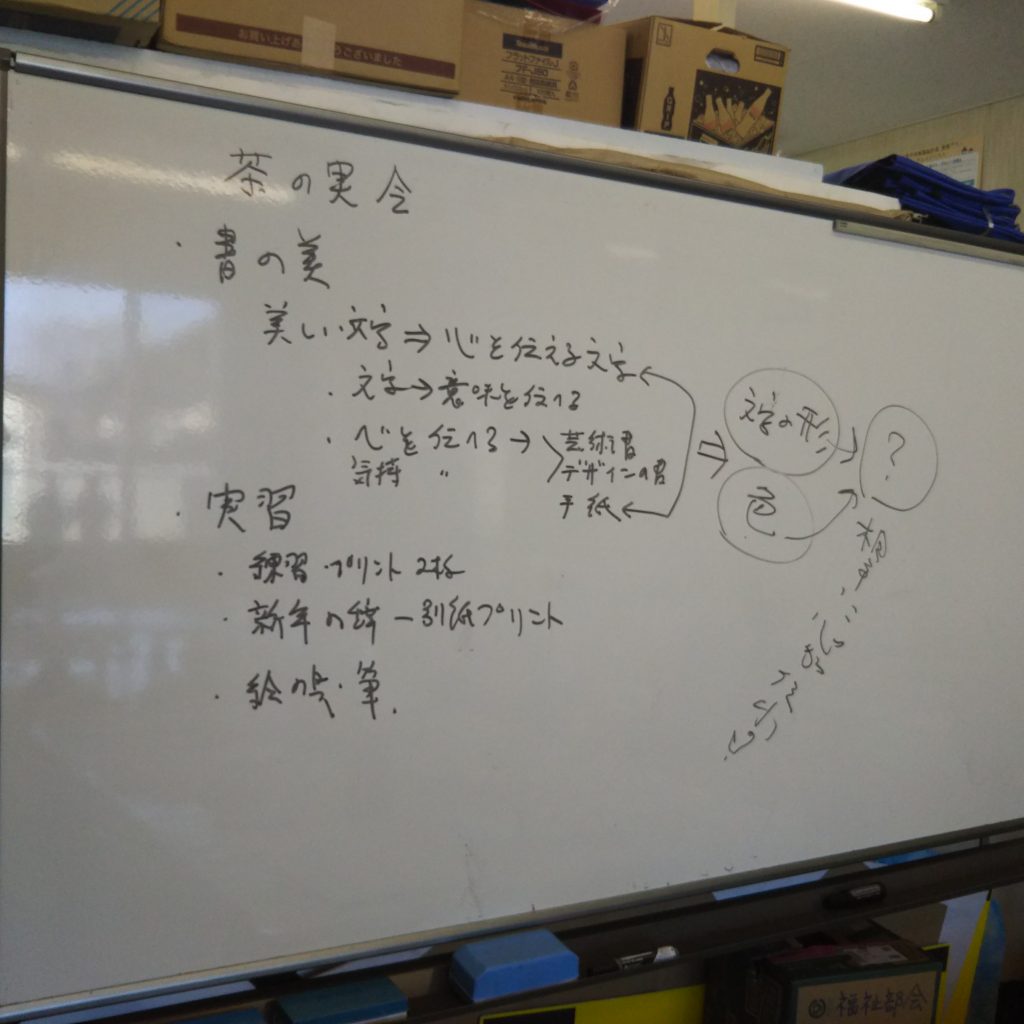 お買い上げありがとうございました
フラットファイルJ
茶の実会
・書の美
美しい文字⇒心を伝える文字
・文字→意味を伝える
・心を伝える→芸術書
気持 〃 デザインの書
手紙
⇒文字の形
色
?
・実習
・練習プリント2枚
・新年の辞ー別紙プリント
・絵の具・筆.
福祉部会